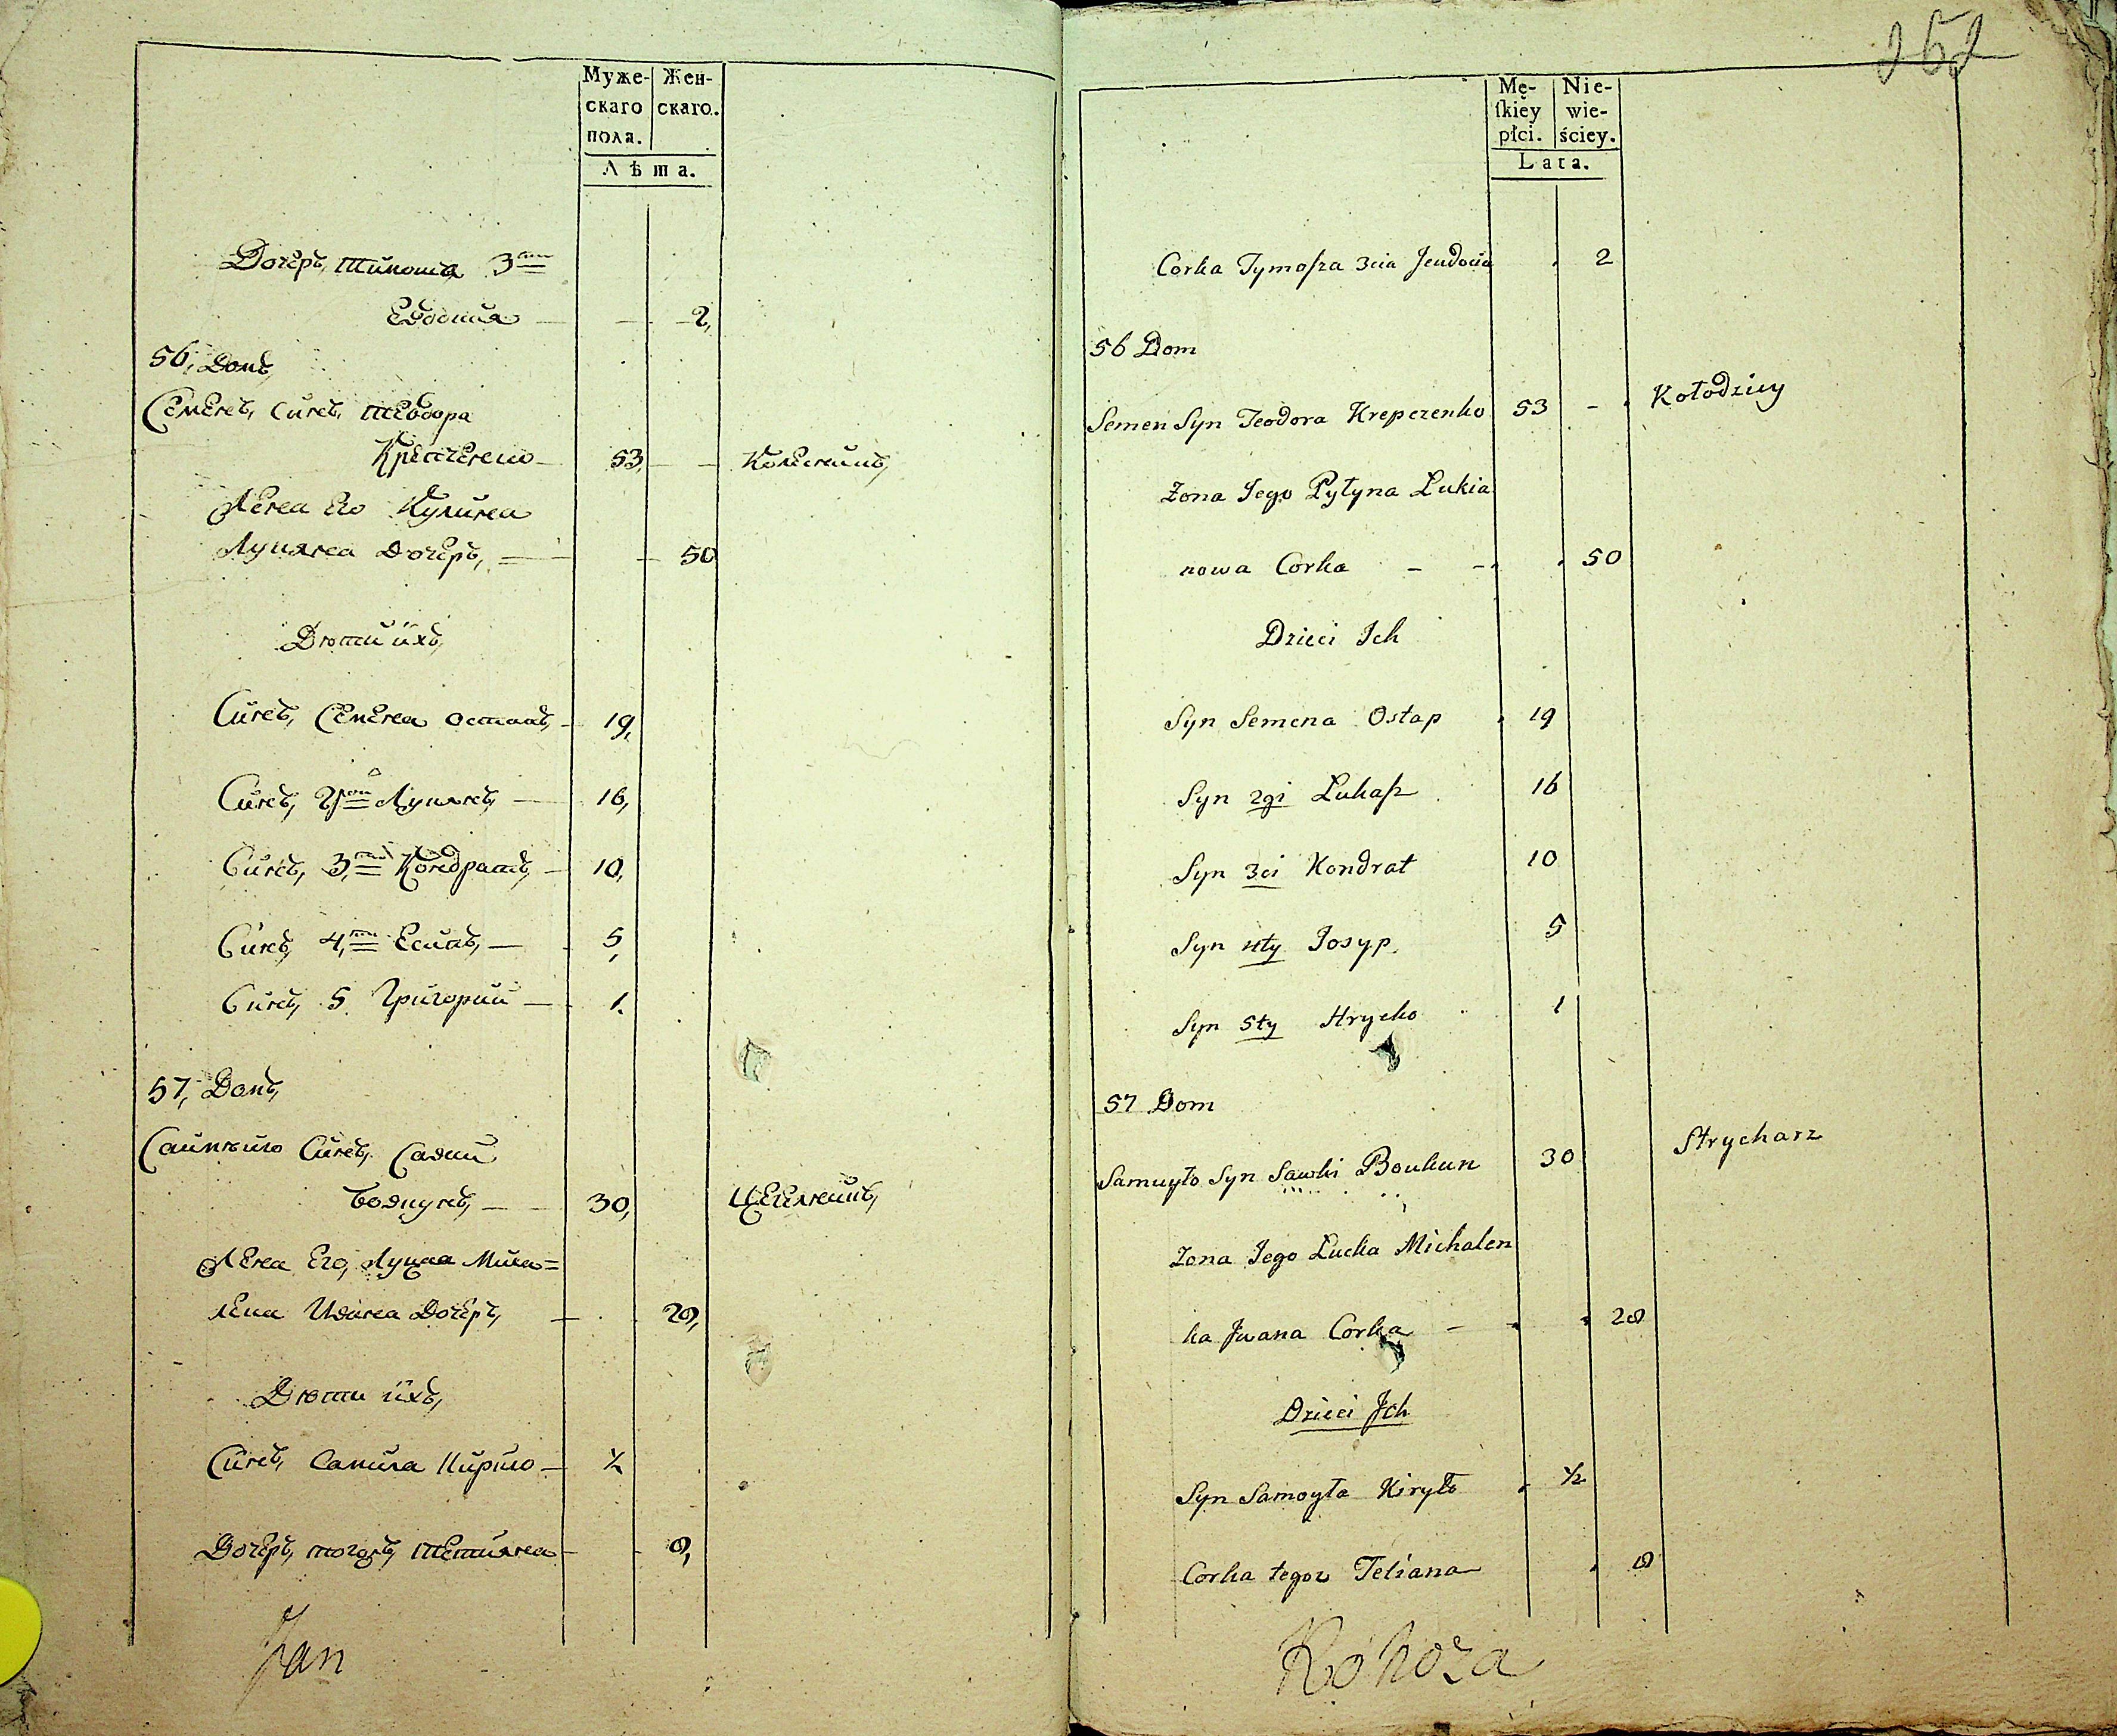 Муже-
скаго
пола.
Жен-
скаго.
Лѣта.
Дочеръ, Тимоша 3
Евдокия — 2,
56, Домъ,
Семенъ, Синъ, Теодора
Крепченко — 53, — — Колесникъ,
Жена Его
Лукяна Дочеръ, — 50
Дѣти ихъ,
Синъ, Семена Остапъ, — 19,
Синъ, 2 Лукянъ, — 16,
Синъ, 3, Кондратъ, — 10,
Синъ, 4, Есипъ, — 5,
Синъ, 5 Григорий — 1.
57, Домъ,
Самуило Синъ, Савки
Бовкунъ, — 30, Цегелникъ,
Жена Его, Луцка Миха=
ленка Ивана Дочеръ, — 28,
Дѣти ихъ,
Синъ, Самила Кирило — 1/2
Дочеръ, тогожъ, Тетияна — 8,
Jan
252
Mę-
ſkiey
płci.
Nie-
wie-
ściey.
Lata.
Corka Tymosza 3cia Jeudocia 2
56 Dom
Semen Syn Teodora Krepczenko 53 - Kołodziey
Zona Jego Pytyna Lukia
nowa Corka - - 50
Dzieci Ich
Syn Semena Ostap 19
Syn 2gi Lukasz 16
Syn 3ci Kondrat 10
Syn 4ty Josyp. 5
Syn 5ty Hrycko 1
57 Dom
Samuyło Syn Sawki Boukun 30 Strycharz
Zona Jego Lucka Michalen
ka Jwana Corka - 28
Dzieci Jch
Syn Samoyła Kiryło 1/2
Corka tegoz Tetiana 8
Rohoza